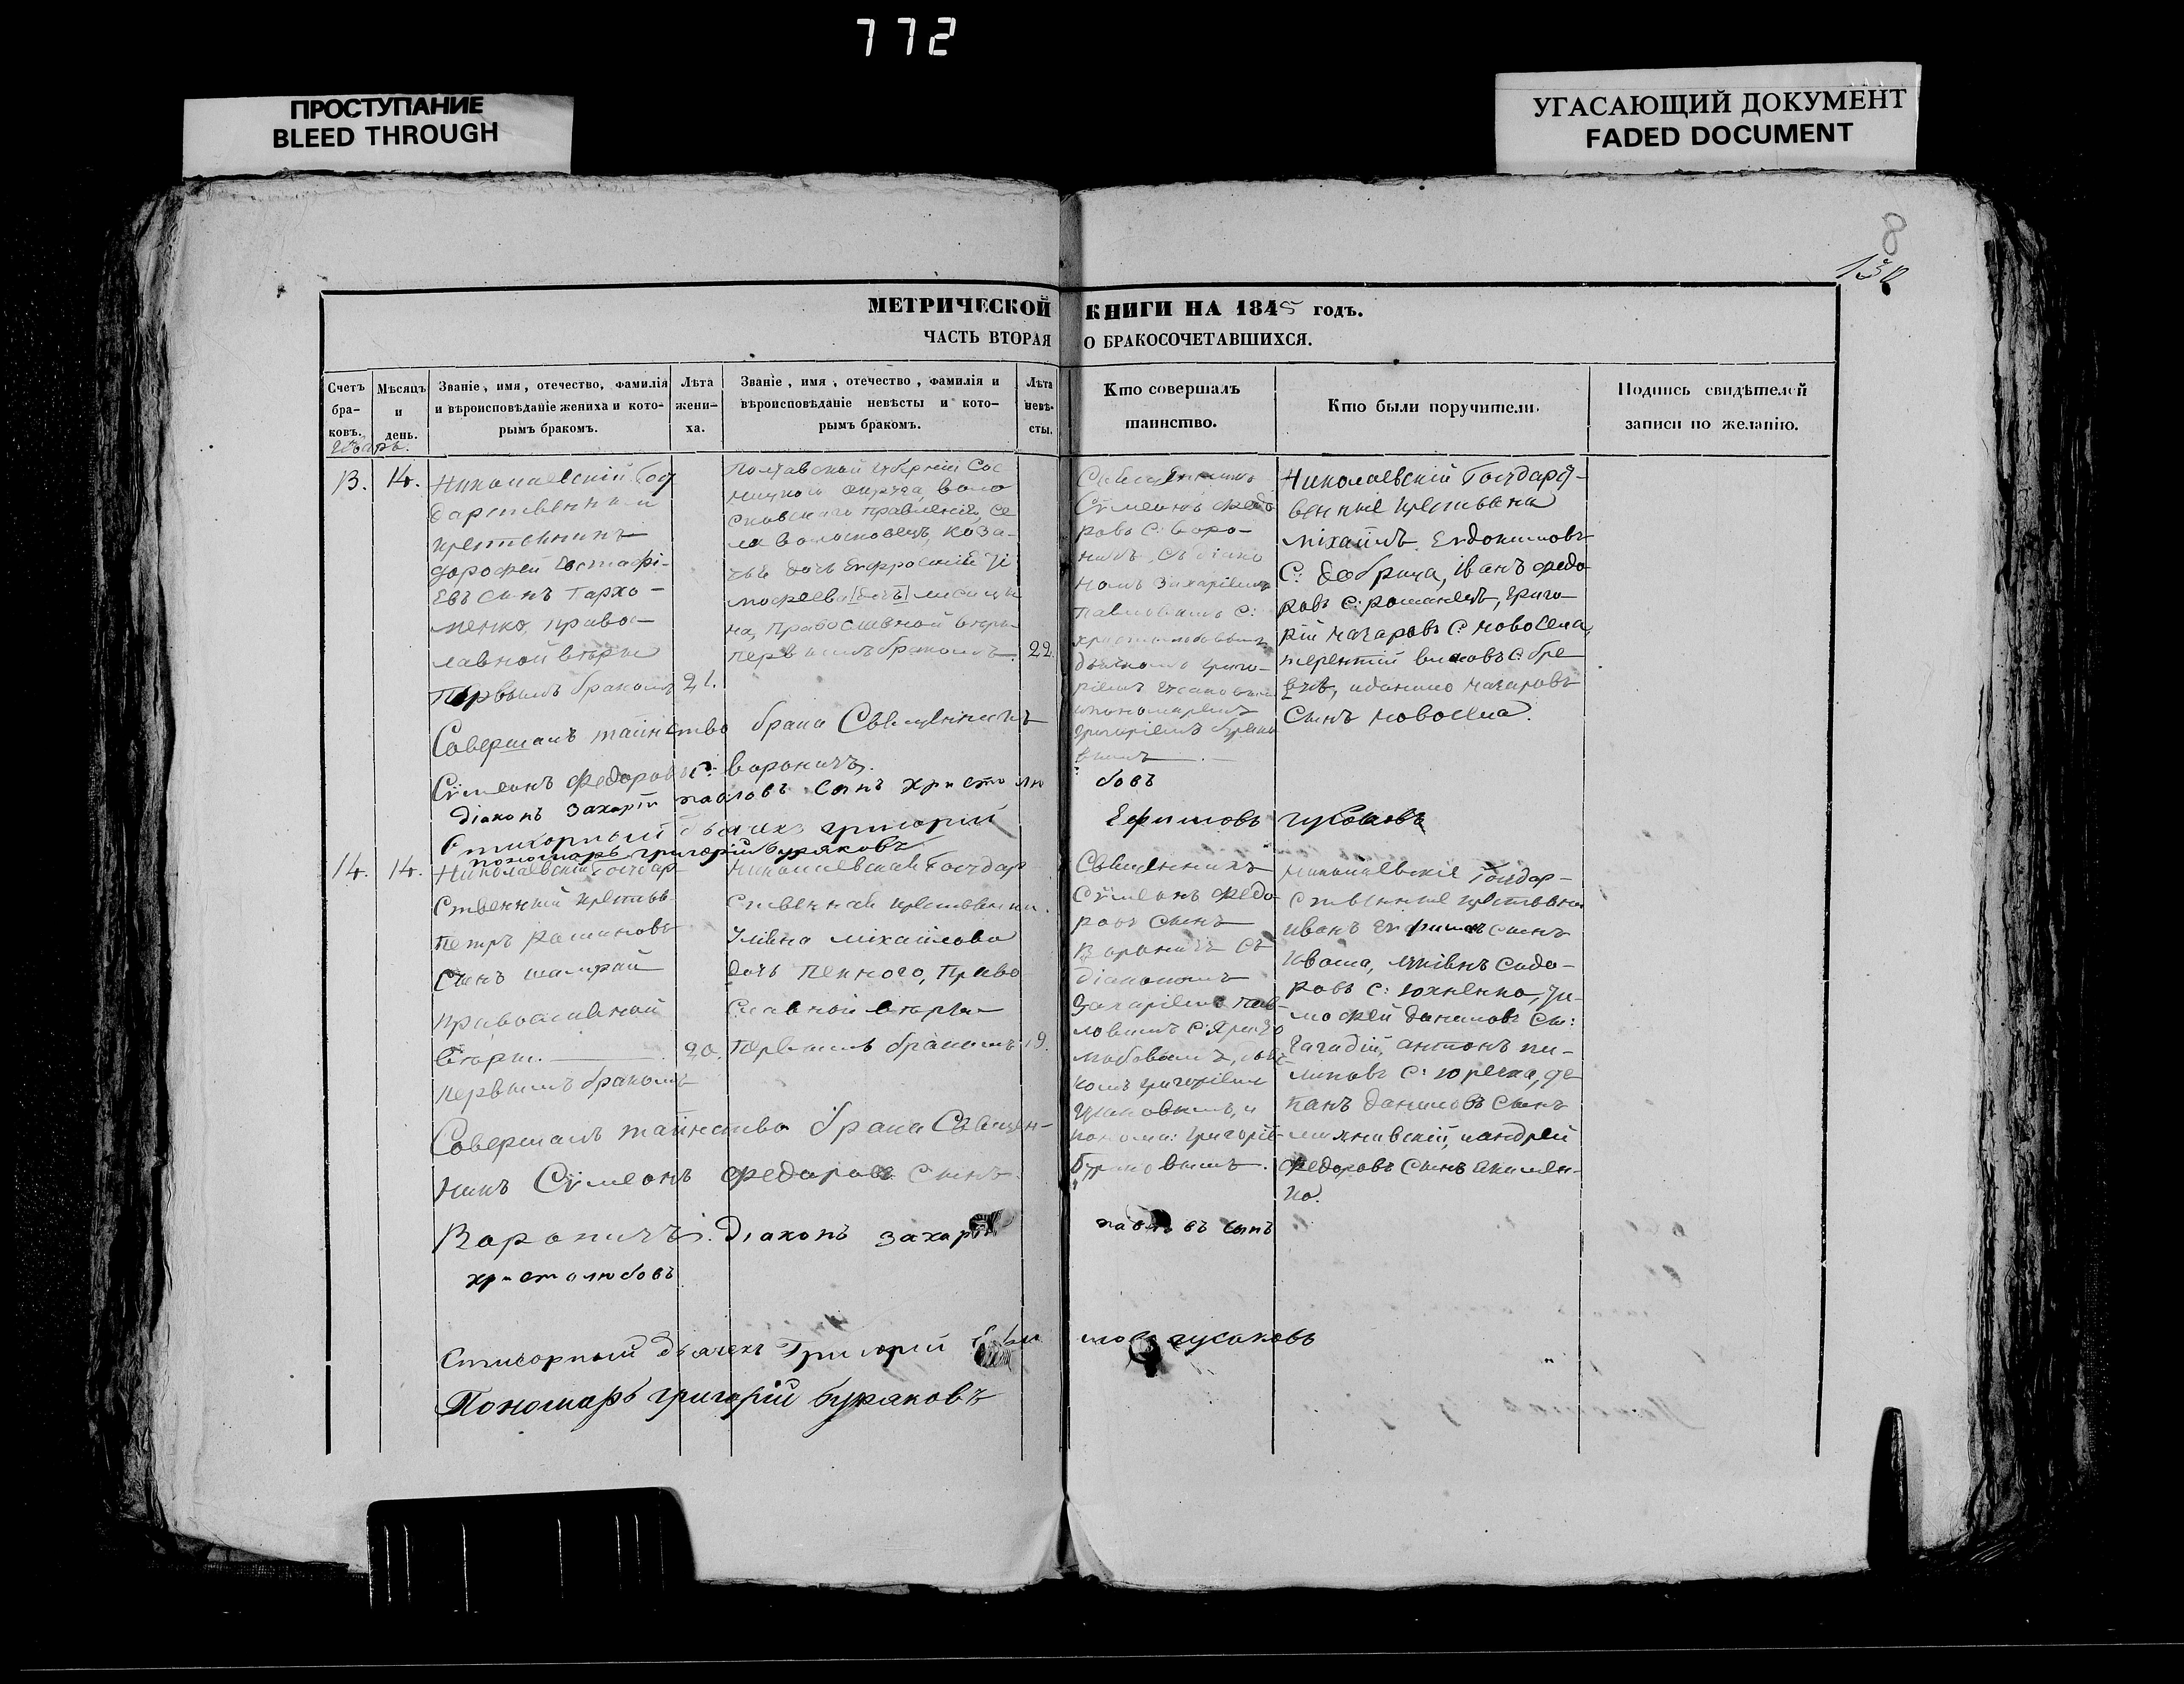 772
ПРОСТУПАНИЕ
BLEED THROUGH
УГАСАЮЩИЙ ДОКУМЕНТ
FADED DOCUMENT
8
МЕТРИЧЕСКОЙ КНИГИ НА 1845 годъ.
ЧАСТЬ ВТОРАЯ О БРАКОСОЧЕТАВШИХСЯ.
Счетъ бра-ковъ.
Мѣсяцъ и день.
Званіе, имя, отечество, фамилія
и вѣроисповѣданіе жениха и кото-
рымъ бракомъ.
Лѣта жени-ха.
Званіе, имя, отечество, фамилія и
вѣроисповѣданіе невѣсты и кото-
рымъ бракомъ.
Лѣта невѣ-сты.
Кто совершалъ
таинство.
Кто были поручители.
Подпись свидѣтелей
записи по желанію.
13.
14.
Николаевскій Госу
дарственный
крестьянинъ
Дорофей Евстафі-
евъ сынъ Пархо-
менко, право-
лавной вѣры
Первымъ бракомъ
21.
Полтавской губерніи
села Волосковецъ, коза-
чья дочь Евфросинія Ти
мофеева дочь лисицы
на, Православной вѣры
первымъ бракомъ
22.
Священникъ
Сѵмеонъ Федо
ровъ С: Воро-
ничъ, съ діако
номъ Захаріемъ
Павловымъ С:
христолюбовымъ
дьячкомъ григо-
ріемъ гусаковымъ
и пономаремъ
григоріемъ буряко
вымъ
Николаевскій Государст-
венные крестьяне
Михаилъ Евдокимовъ
С: Добрица, Иванъ Федо
ровъ С: романецъ, григо-
рій Макаровъ С: Новосела,
терентій
и данило Макаровъ
сынъ Новосела.
Совершалъ таинство брака Священникъ
Сѵмеонъ Федоровъ С: Вороничъ.
діаконъ Захарій павловъ сынъ христолю бовъ
Стихорный дьячекъ григорій Ефимовъ гусаковъ
пономарь григорій буряковъ
14.
14.
Николаевскій Государ
ственный крестьян.
Петръ Романовъ
сынъ Шамрай
православной
вѣры.
первымъ бракомъ
20.
Николаевская Государ
ственная крестьянка.
Уліяна Михайлова
дочь Пенного, Право
славной вѣры
первымъ бракомъ
19.
Священникъ
Сѵмеонъ Федо-
ровъ сынъ
Вороничъ съ
діакономъ
Захаріемъ Пав-
ловымъ С: Христо
любовымъ, дьяч
комъ григоріемъ
гусаковымъ, и
понома: григоріе-
Буряковымъ.
Николаевскіе Государ-
ственные крестьяне
Иванъ Ефимовъ сынъ
Кваша, Лукіянъ Сидо-
ровъ С: Юхненко, Ти-
мофей Даниловъ Сы:
Гагадій, антонъ
С: Юреска, Сте
панъ Даниловъ Сынъ
и андрей
Федоровъ Сынъ Якимен-
ко.
Совершалъ таинство брака Священ-
никъ Сѵмеонъ Федоровъ Сынъ
Вороничъ. Діаконъ Захарій павловъ сынъ
христолюбовъ
Стихорный дьячекъ Григорій Ефи мовъ гусаковъ
Пономарь григорій буряковъ